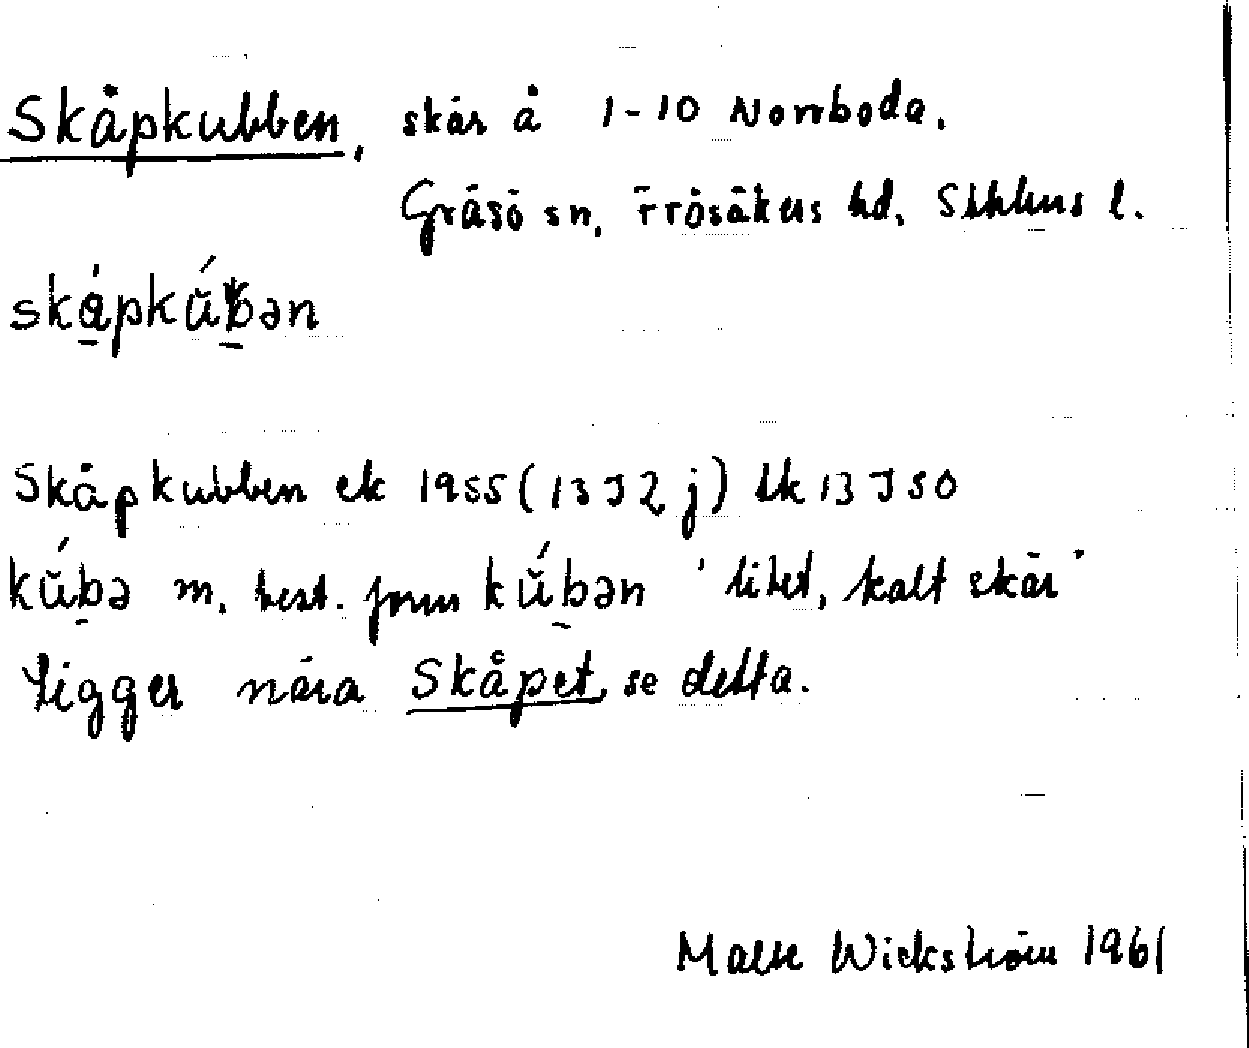 Skåpkubben, skär å 1-10 Norrboda.
Gräsö sn, Frösåkers hd, Sthlms l.
skåpkŭ́bən
Skåpkubben ek 1955 (13 I 2 j) bk 13 I S O
kŭ́bə m. best. form kŭ́bən 'litet, kalt skär'
Ligger nära Skåpet, se detta.
Malte Wickström 1961